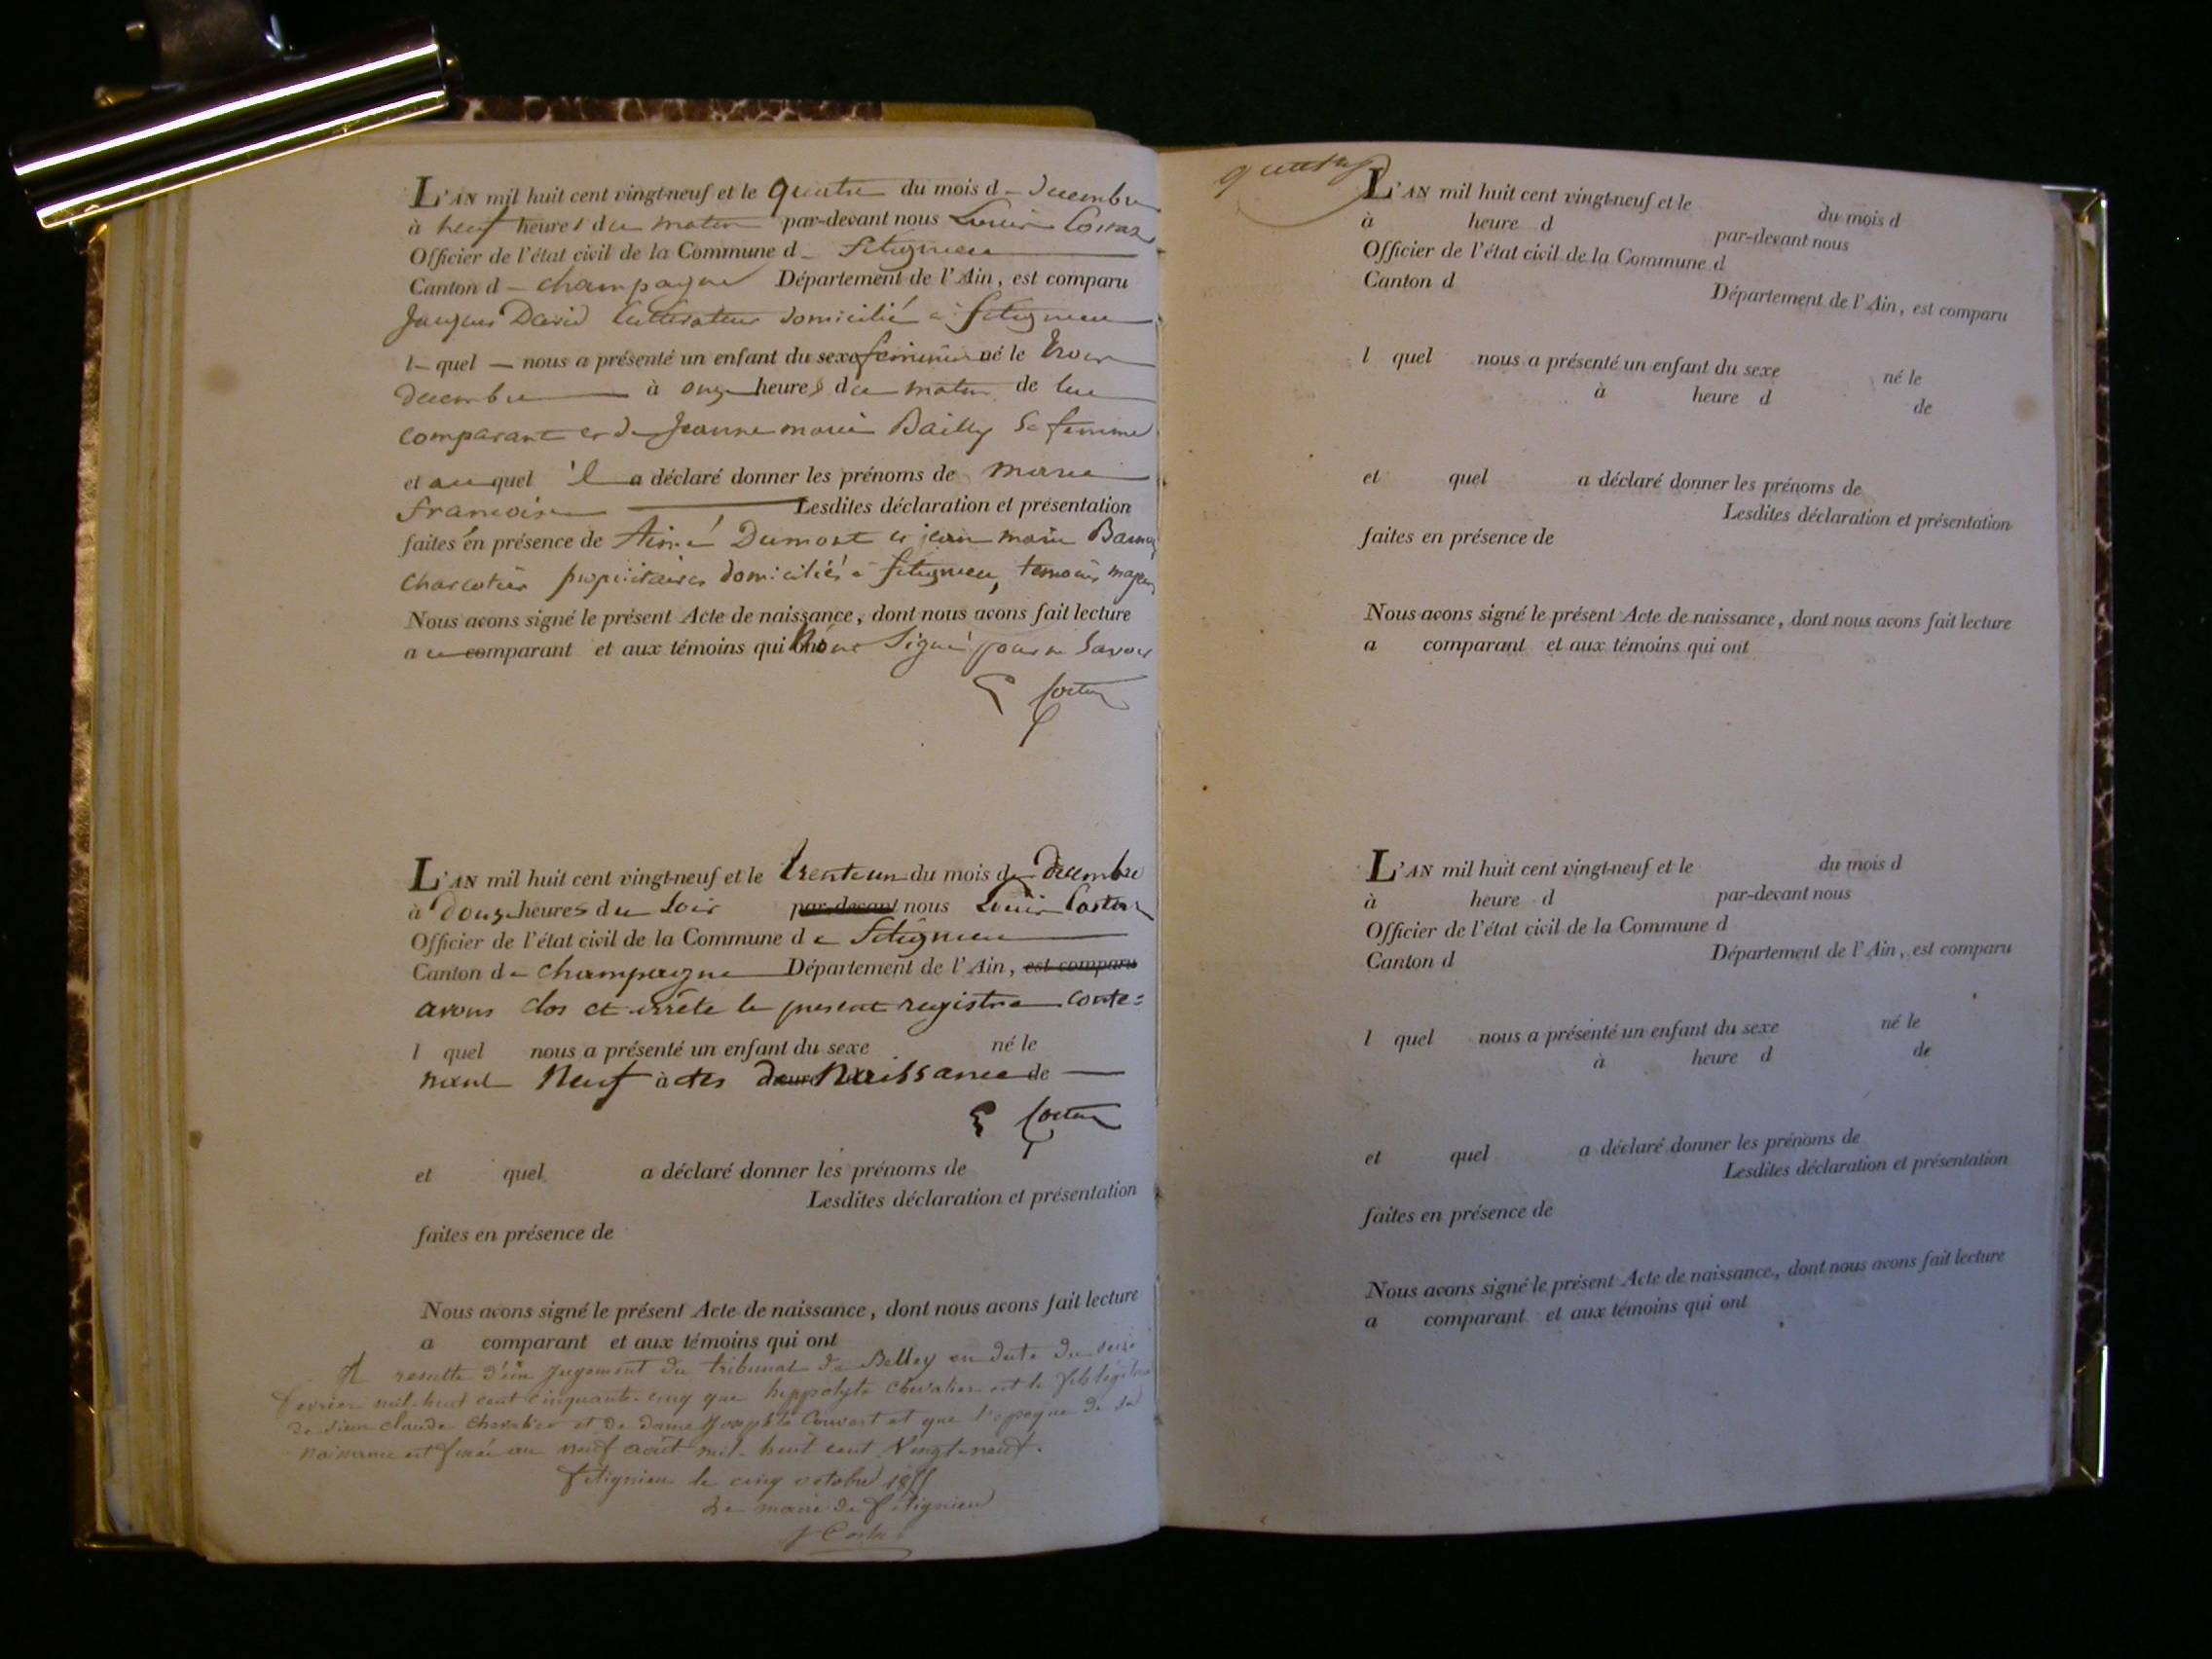 L'AN mil huit cent vingt-neuf et le quatre du mois d decembre
à neuf heures du matin par-devant nous Louis
Officier de l'état civil de la Commune d fitignieu
Canton d champagne Département de l'Ain, est comparu
Jacques David cultivateur domicilié à fitignieu
l quel nous a présenté un enfant du sexe feminin né le trois
decembre à onze heures du matin de lui
comparant et de Jeanne marie Bailly Sa femme
et auquel il a déclaré donner les prénoms de marie
francoise Lesdites déclaration et présentation
faites en présence de Aimé Dumont et jean marie
propriétaires domiciliés à fitignieu, temoins majeurs
Nous avons signé le présent Acte de naissance, dont nous avons fait lecture
au comparant et aux témoins qui signé pour ne savoir
L'AN mil huit cent vingt-neuf et le trente un du mois de Decembre
à douze heures du soir par-devant nous Louis Costaz
Officier de l'état civil de la Commune de fitignieu
Canton de champagne Département de l'Ain, est comparu
avons clos et arrête le present registre conte=
l quel nous a présenté un enfant du sexe né le
nant Neuf actes de Naissance de
et quel a déclaré donner les prénoms de
Lesdites déclaration et présentation
faites en présence de
Nous avons signé le présent Acte de naissance, dont nous avons fait lecture
a comparant et aux témoins qui ont
Il resulte d'un jugement du tribunal de Belley en date du seize
fevrier mil-huit cent cinquante-cinq que hippolyte chevalier est le fils légitime
de sieur claude chevalier et de dame Josephte Convert et que l'epoque de sa
naissance est fixée au neuf août mil-huit cent Vingt-neuf.
fitignieu le cinq octobre 1855
Le maire de fitignieu
L'AN mil huit cent vingt-neuf et le du mois d
à heure d par-devant nous
Officier de l'état civil de la Commune d
Canton d Département de l'Ain, est comparu
l quel nous a présenté un enfant du sexe né le
à heure d de
et quel a déclaré donner les prénoms de
Lesdites déclaration et présentation
faites en présence de
Nous avons signé le présent Acte de naissance, dont nous avons fait lecture
a comparant et aux témoins qui ont
L'AN mil huit cent vingt-neuf et le du mois d
à heure d par-devant nous
Officier de l'état civil de la Commune d
Canton d Département de l'Ain, est comparu
l quel nous a présenté un enfant du sexe né le
à heure d de
et quel a déclaré donner les prénoms de
Lesdites déclaration et présentation
faites en présence de
Nous avons signé le présent Acte de naissance, dont nous avons fait lecture
a comparant et aux témoins qui ont